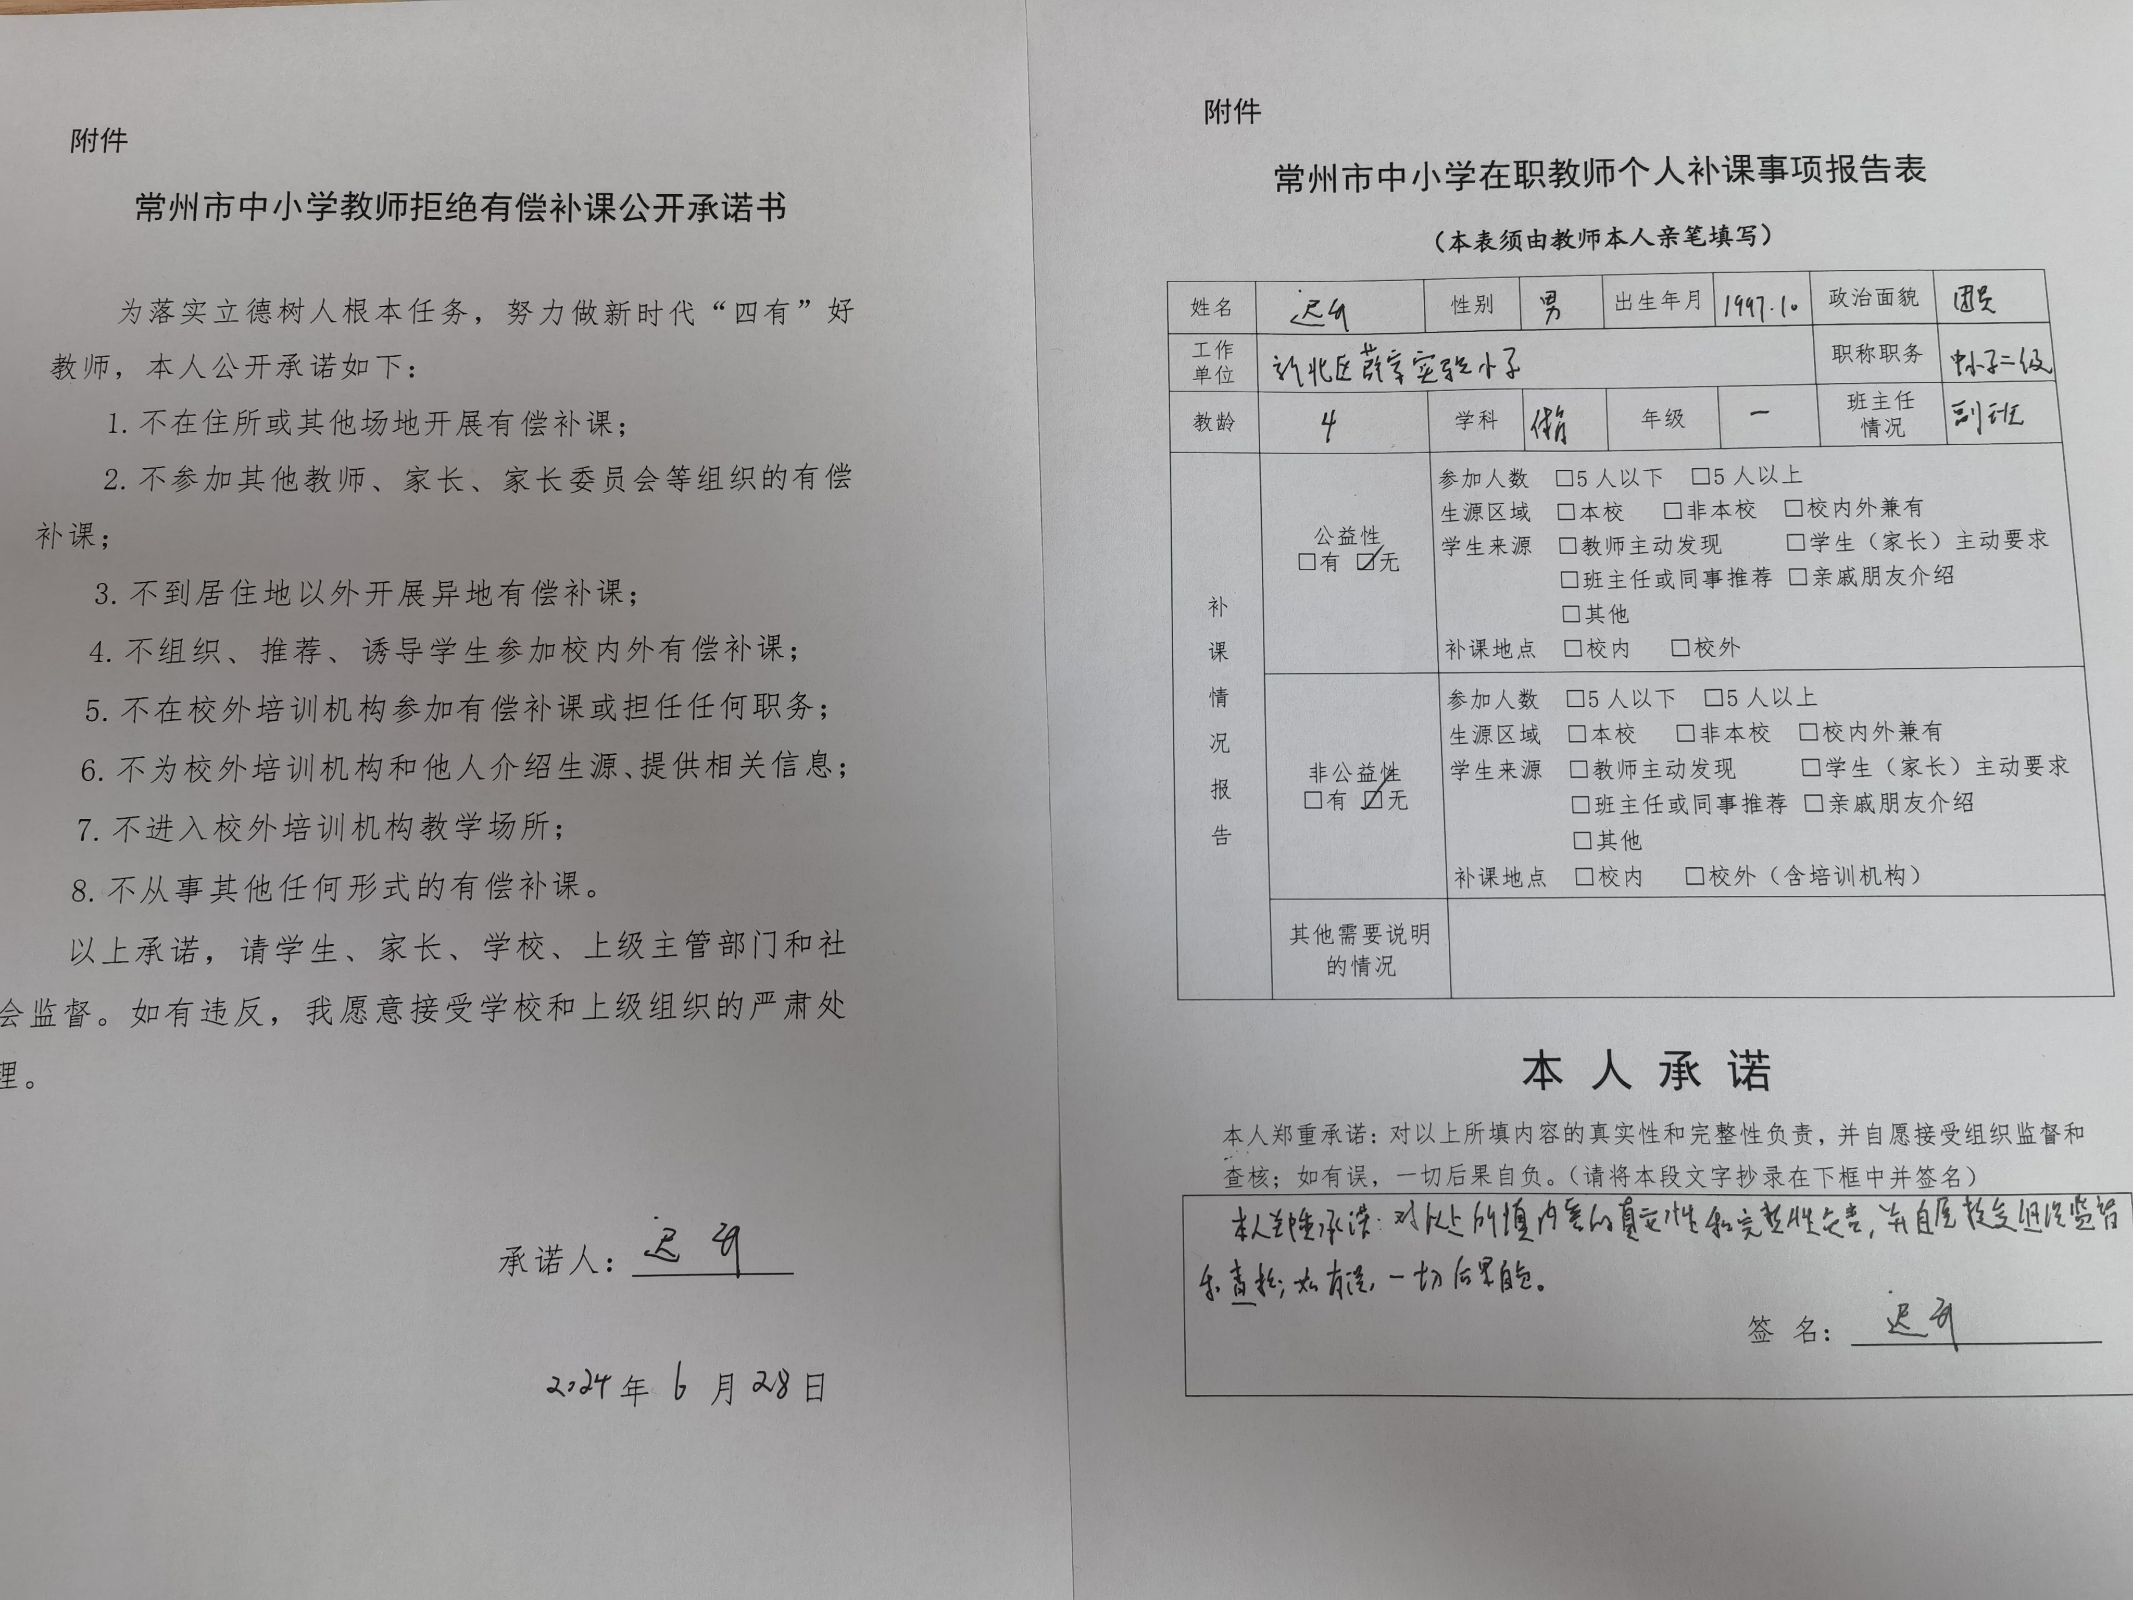 附件
常州市中小学教师拒绝有偿补课公开承诺书
为落实立德树人根本任务，努力做新时代“四有”好
教师，本人公开承诺如下：
1. 不在住所或其他场地开展有偿补课；
2. 不参加其他教师、家长、家长委员会等组织的有偿
补课；
3. 不到居住地以外开展异地有偿补课；
4. 不组织、推荐、诱导学生参加校内外有偿补课；
5. 不在校外培训机构参加有偿补课或担任任何职务；
6. 不为校外培训机构和他人介绍生源、提供相关信息；
7. 不进入校外培训机构教学场所；
8. 不从事其他任何形式的有偿补课。
以上承诺，请学生、家长、学校、上级主管部门和社
会监督。如有违反，我愿意接受学校和上级组织的严肃处
理。
承诺人：迟
2024年 6 月 28日
附件
常州市中小学在职教师个人补课事项报告表
（本表须由教师本人亲笔填写）
姓名 迟 性别 男 出生年月 1997.10 政治面貌 团员
工作单位 新北区薛家实验小学 职称职务 中小学二级
教龄 4 学科 体育 年级 一 班主任情况 副班
补课情况报告
公益性
□有 ☑无
参加人数 □5 人以下 □5 人以上
生源区域 □本校 □非本校 □校内外兼有
学生来源 □教师主动发现 □学生（家长）主动要求
□班主任或同事推荐 □亲戚朋友介绍
□其他
补课地点 □校内 □校外
非公益性
□有 ☑无
参加人数 □5 人以下 □5 人以上
生源区域 □本校 □非本校 □校内外兼有
学生来源 □教师主动发现 □学生（家长）主动要求
□班主任或同事推荐 □亲戚朋友介绍
□其他
补课地点 □校内 □校外（含培训机构）
其他需要说明
的情况
本人承诺
本人郑重承诺：对以上所填内容的真实性和完整性负责，并自愿接受组织监督和
查核；如有误，一切后果自负。（请将本段文字抄录在下框中并签名）
本人郑重承诺：对以上所填内容的真实性和完整性负责，并自愿接受组织监督
和查核；如有误，一切后果自负。
签 名： 迟